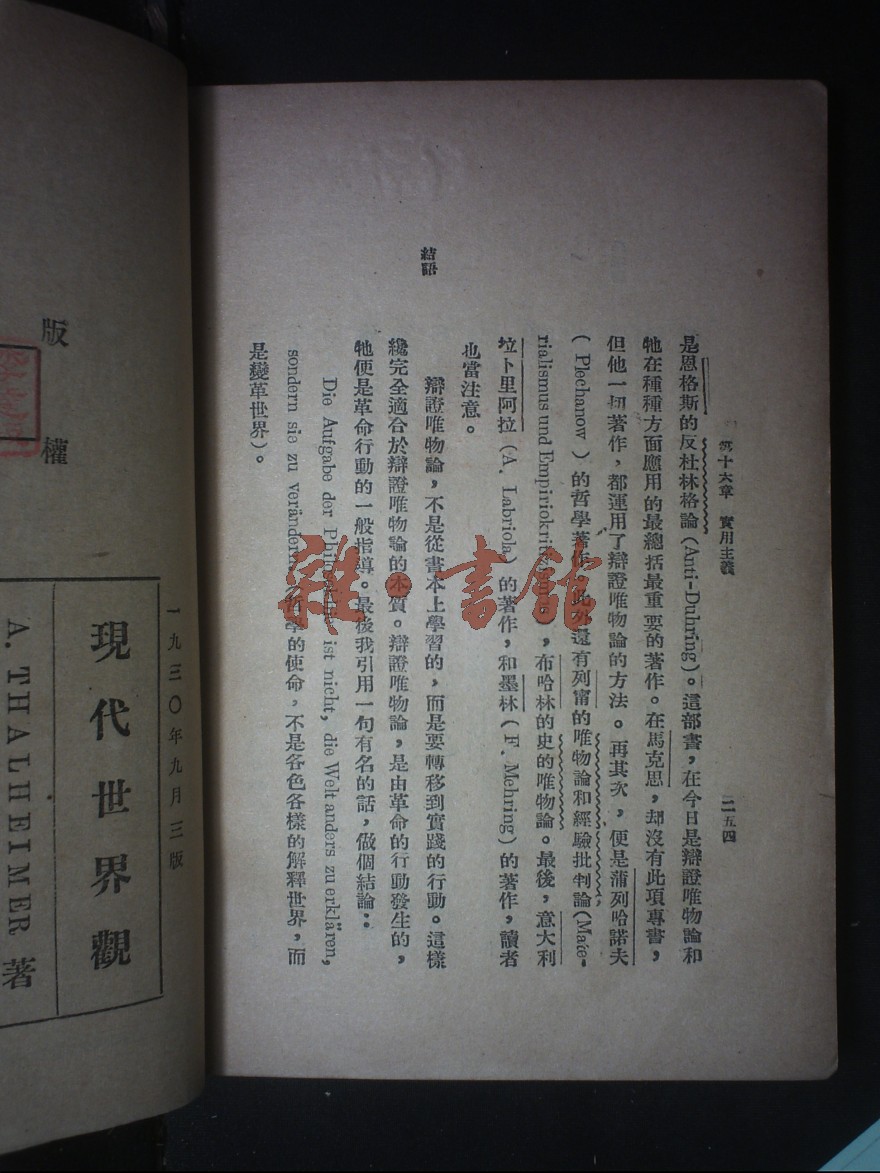 第十六章　實用主義
二五四
是恩格斯的反杜林格論(Anti-Duhring)。這部書，在今日是辯證唯物論和
牠在種種方面應用的最總括最重要的著作。在馬克思，却沒有此項專書，
但他一切著作，都運用了辯證唯物論的方法。再其次，便是蒲列哈諾夫
(Plechanow)的哲學著作。此外還有列甯的唯物論和經驗批判論(Mate-
rialismus und Empiriokritizismus)，布哈林的史的唯物論。最後，意大利
垃卜里阿拉(A. Labriola)的著作，和墨林(F. Mehring)的著作，讀者
也當注意。
結語
辯證唯物論，不是從書本上學習的，而是要轉移到實踐的行動。這樣
纔完全適合於辯證唯物論的本質。辯證唯物論，是由革命的行動發生的，
牠便是革命行動的一般指導。最後我引用一句有名的話，做個結論：
Die Aufgabe der Philosophie ist nicht, die Welt anders zu erklären,
sondern sie zu verändern(哲學的使命，不是各色各樣的解釋世界，而
是變革世界)。
雜·書館
版權
一九三〇年九月三版
現代世界觀
A. THALHEIMER 著